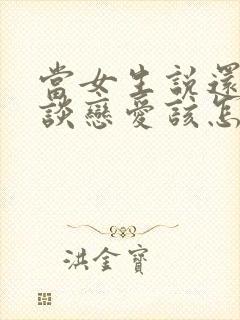 當女生說還
談戀愛該怎
洪金寶